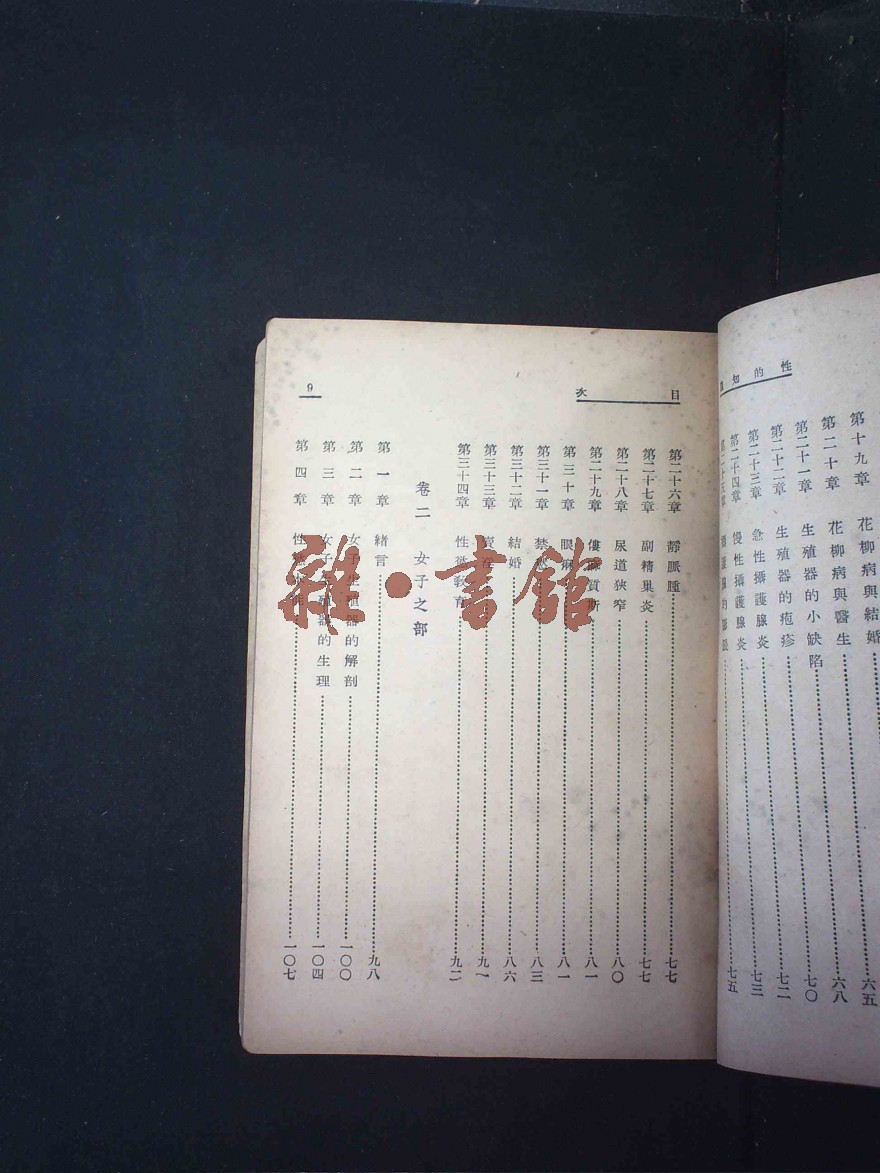 性的知
第十九章 花柳病與結婚 六五
第二十章 花柳病與醫生 六八
第二十一章 生殖器的小缺陷 七〇
第二十二章 生殖器的疱疹 七二
第二十三章 急性攝護腺炎 七三
第二十四章 慢性攝護腺炎 七五
目次
第二十六章 靜脈腫 七七
第二十七章 副精巢炎 七七
第二十八章 尿道狹窄 八〇
第二十九章 僂麻質斯 八一
第三十章 眼 八一
第三十一章 禁 八三
第三十二章 結婚 八六
第三十三章 九一
第三十四章 性慾教育 九二
卷二 女子之部
第一章 緒言 九八
第二章 女子生殖器的解剖 一〇〇
第三章 女子生殖器的生理 一〇四
第四章 性 一〇七
9
雜・書館